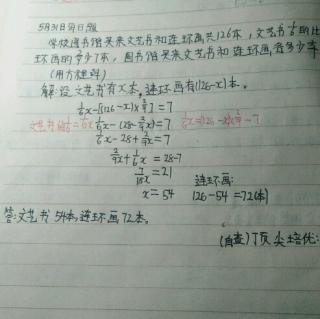 5月31日每日一题
学校图书馆买来文艺书和连环画共126本,文艺书的1/6比
连环画的2/9少7本,图书馆买来文艺书和连环画各多少本
(用方程解)
解:设文艺书有x本,连环画有(126-x)本。
1/6x-[(126-x)×2/9]=7
文艺书的1/6=1/6x 1/6x-(28-2/9x)=7 1/6x=(126-x)×2/9-7
1/6x-28+2/9x=7
2/9x+1/6x=28-7
7/18x=21 连环画:
x=54 126-54=72(本)
答:文艺书54本,连环画72本。
(自查)丁页尖培优: